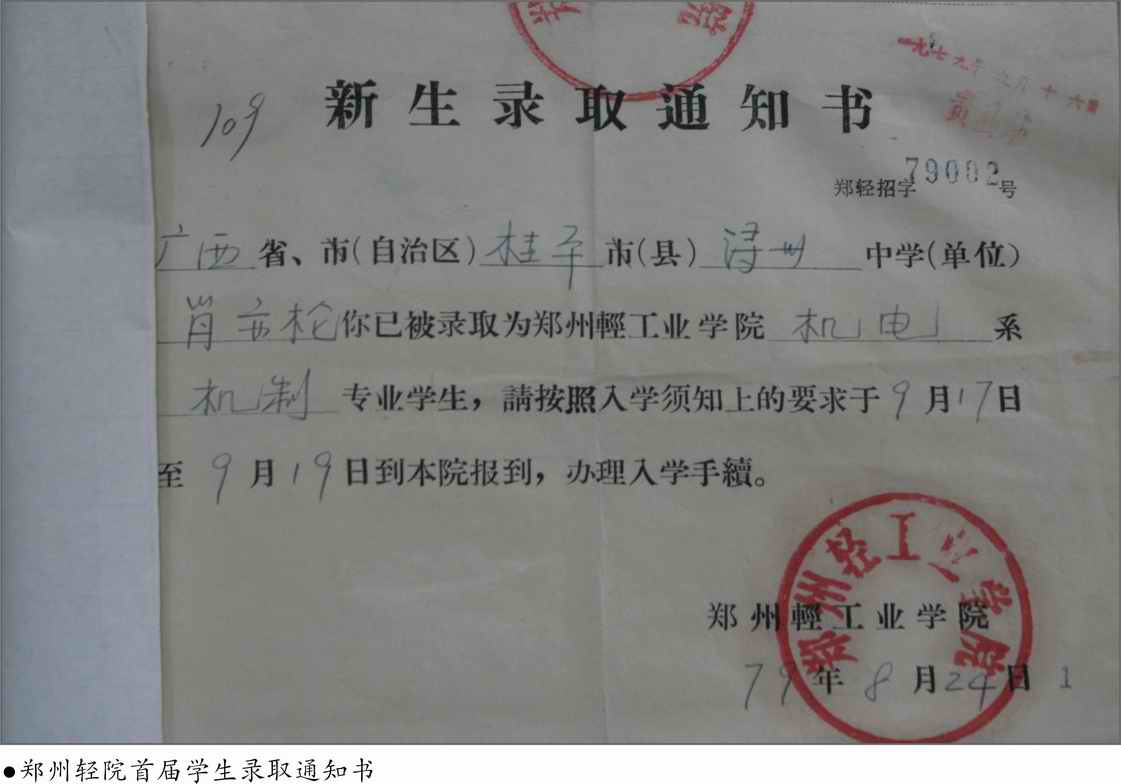 郑 院
一九七九年 月十六日
109
新生录取通知书
郑轻招字79002号
广西省、市(自治区)桂平市(县)浔州中学(单位)
肖 你已被录取为郑州輕工业学院机电系
机制专业学生，請按照入学须知上的要求于9月17日
至9月19日到本院报到，办理入学手續。
郑州轻工业学院
郑州輕工业学院
79年8月24日
1
●郑州轻院首届学生录取通知书